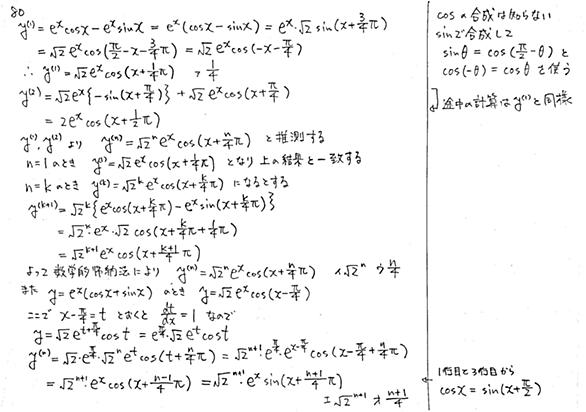 80
y⁽¹⁾ = eˣcosx − eˣsinx = eˣ(cosx − sinx) = eˣ·√2 sin(x+3/4π)
= √2eˣcos(π/2−x−3/4π) = √2eˣcos(−x−π/4)
∴ y⁽¹⁾ = √2eˣcos(x+1/4π) ア 1/4
y⁽²⁾ = √2eˣ{−sin(x+π/4)} + √2eˣcos(x+π/4)
= 2eˣcos(x+1/2π)
y⁽¹⁾, y⁽²⁾ より y⁽ⁿ⁾ = √2ⁿeˣcos(x+n/4π) と推測する
n=1のとき y⁽¹⁾ = √2eˣcos(x+1/4π) となり上の結果と一致する
n=kのとき y⁽ᵏ⁾ = √2ᵏeˣcos(x+k/4π) になるとする
y⁽ᵏ⁺¹⁾ = √2ᵏ{eˣcos(x+k/4π) − eˣsin(x+k/4π)}
= √2ᵏ·eˣ·√2 cos(x+k/4π+1/4π)
= √2ᵏ⁺¹eˣcos(x+k+1/4π)
よって数学的帰納法により y⁽ⁿ⁾ = √2ⁿeˣcos(x+n/4π) イ √2ⁿ ウ n/4
また y = eˣ(cosx+sinx) のとき y = √2eˣcos(x−π/4)
ここで x−π/4 = t とおくと dt/dx = 1 なので
y = √2e^(t+π/4)cost = e^(π/4)·√2eᵗcost
y⁽ⁿ⁾ = √2·e^(π/4)·√2ⁿeᵗcos(t+n/4π) = √2ⁿ⁺¹·e^(π/4)e^(x−π/4)cos(x−π/4+n/4π)
= √2ⁿ⁺¹·eˣcos(x+n−1/4π) = √2ⁿ⁺¹·eˣsin(x+n+1/4π)
エ √2ⁿ⁺¹ オ n+1/4
cosの合成は知らない
sinで合成して
sinθ = cos(π/2−θ) と
cos(−θ) = cosθ を使う
途中の計算はy⁽¹⁾と同様
1行目と3行目から
cosx = sin(x+π/2)